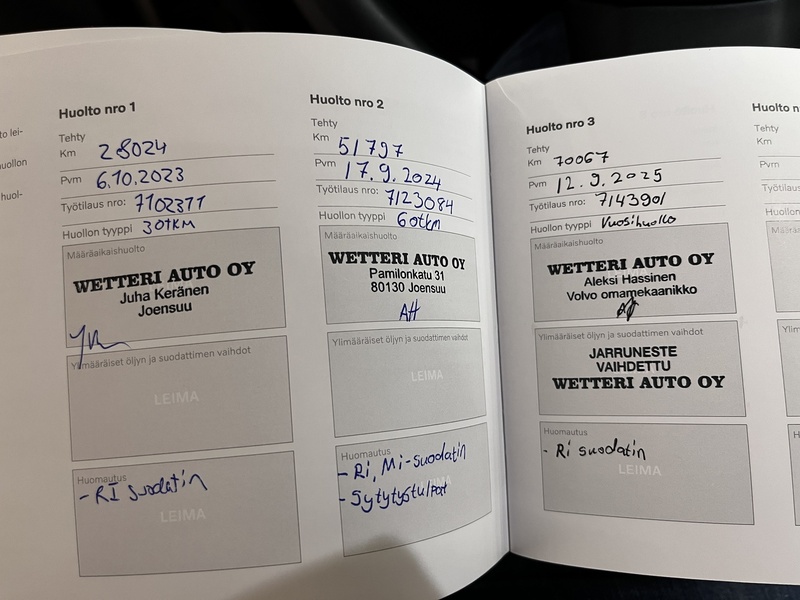 to lei-
huollon
huol-
Huolto nro 1
Tehty
Km 28024
Pvm 6.10.2023
Työtilaus nro: 7102377
Huollon tyyppi 30TKM
Määräaikaishuolto
WETTERI AUTO OY
Juha Keränen
Joensuu
Ylimääräiset öljyn ja suodattimen vaihdot
LEIMA
Huomautus
- RI suodatin
LEIMA
Huolto nro 2
Tehty
Km 51797
Pvm 17.9.2024
Työtilaus nro: 7123084
Huollon tyyppi 60tkm
Määräaikaishuolto
WETTERI AUTO OY
Pamilonkatu 31
80130 Joensuu
AH
Ylimääräiset öljyn ja suodattimen vaihdot
LEIMA
Huomautus
- Ri, Mi-suodatin
- Sytytystulpat
Huolto nro 3
Tehty
Km 70067
Pvm 12.9.2025
Työtilaus nro: 7143901
Huollon tyyppi Vuosihuolto
Määräaikaishuolto
WETTERI AUTO OY
Aleksi Hassinen
Volvo omamekaanikko
Ylimääräiset öljyn ja suodattimen vaihdot
JARRUNESTE
VAIHDETTU
WETTERI AUTO OY
Huomautus
- Ri suodatin
LEIMA
Huolto n
Tehty
Km
Pvm
Työtilaus
Huollon